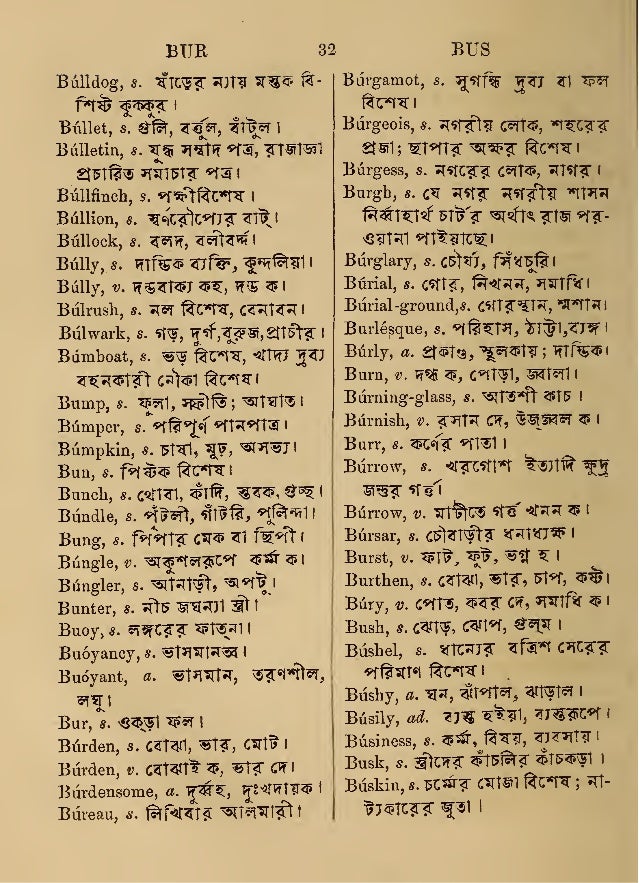 BUR 32 BUS
Búlldog, s. ষাঁড়ের ন্যায় মস্তক বি-
শিষ্ট কুক্কুর।
Búllet, s. গুলি, বর্ত্তুল, বাঁটুল।
Búlletin, s. যুদ্ধ সম্বাদ পত্র, রাজাজ্ঞা
প্রচারিত সমাচার পত্র।
Búllfinch, s. পক্ষীবিশেষ।
Búllion, s. স্বর্ণরৌপ্যের বাট্।
Búllock, s. বলদ, বলীবর্দ্দ।
Búlly, s. দাম্ভিক ব্যক্তি, কুন্দলিয়া।
Búlly, v. দম্ভবাক্য কহ, দম্ভ ক।
Búlrush, s. নল বিশেষ, বেনাবন।
Búlwark, s. গড়, দুর্গ,বুরুজ,প্রাচীর।
Búmboat, s. ভড় বিশেষ, খাদ্য দ্রব্য
বহনকারী নৌকা বিশেষ।
Bump, s. ফুলা, স্ফীতি; আঘাত।
Búmper, s. পরিপূর্ণ পানপাত্র।
Búmpkin, s. চাষা, মূঢ়, অসভ্য।
Bun, s. পিষ্টক বিশেষ।
Bunch, s. থোবা, কাঁদি, স্তবক, গুচ্ছ।
Búndle, s. পুঁটলী, গাঁটরি, পুলিন্দা।
Bung, s. পিপার মেক বা ছিপী।
Búngle, v. অকুশলরূপে কর্ম্ম ক।
Búngler, s. আনাড়ী, অপটু।
Bunter, s. নীচ জঘন্যা স্ত্রী।
Buoy, s. লঙ্গরের ফাত্না।
Buóyancy, s. ভাসমানত্ব।
Buóyant, a. ভাসমান, তরণশীল,
লঘু।
Bur, s. ওকড়া ফল।
Búrden, s. বোঝা, ভার, মোট।
Búrden, v. বোঝাই ক, ভার দে।
Búrdensome, a. দুর্ব্বহ, দুঃখদায়ক।
Búreau, s. লিখিবার আলমারী।
Búrgamot, s. সুগন্ধি দ্রব্য বা ফল
বিশেষ।
Búrgeois, s. নগরীয় লোক, শহরের
প্রজা; ছাপার অক্ষর বিশেষ।
Búrgess, s. নগরের লোক, নাগর।
Burgh, s. যে নগর নগরীয় শাসন
নির্ব্বাহার্থ চার্টর অর্থাৎ রাজ পর-
ওয়ানা পাইয়াছে।
Búrglary, s. চৌর্য্য, সিঁধচুরি।
Búrial, s. গোর, নিখনন, সমাধি।
Búrial-ground,s. গোরস্থান, শ্মশান।
Burlésque, s. পরিহাস, ঠাট্টা,ব্যঙ্গ।
Búrly, a. প্রকাণ্ড, স্থূলকায়; দাম্ভিক।
Burn, v. দগ্ধ ক, পোড়া, জ্বালা।
Búrning-glass, s. আতশী কাচ।
Búrnish, v. রসান দে, উজ্জ্বল ক।
Burr, s. কর্ণের পাতা।
Búrrow, s. খরগোশ ইত্যাদি ক্ষুদ্র
জন্তুর গর্ত্ত।
Búrrow, v. মাটীতে গর্ত্ত খনন ক।
Búrsar, s. চৌবাড়ীর ধনাধ্যক্ষ।
Burst, v. ফাট, ফুট, ভগ্ন হ।
Burthen, s. বোঝা, ভার, চাপ, কষ্ট।
Búry, v. পোত, কবর দে, সমাধি ক।
Bush, s. ঝোড়, ঝোপ, গুল্ম।
Búshel, s. ধান্যের বত্রিশ সেরের
পরিমাণ বিশেষ।
Búshy, a. ঘন, ঝাঁপাল, ঝাড়াল।
Búsily, ad. ব্যস্ত হইয়া, ব্যস্তরূপে।
Búsiness, s. কর্ম্ম, বিষয়, ব্যবসায়।
Busk, s. স্ত্রীদের কাঁচলির কাঁচকড়া।
Búskin, s. চর্ম্মের মোজা বিশেষ; না-
ট্যকারের জুতা।